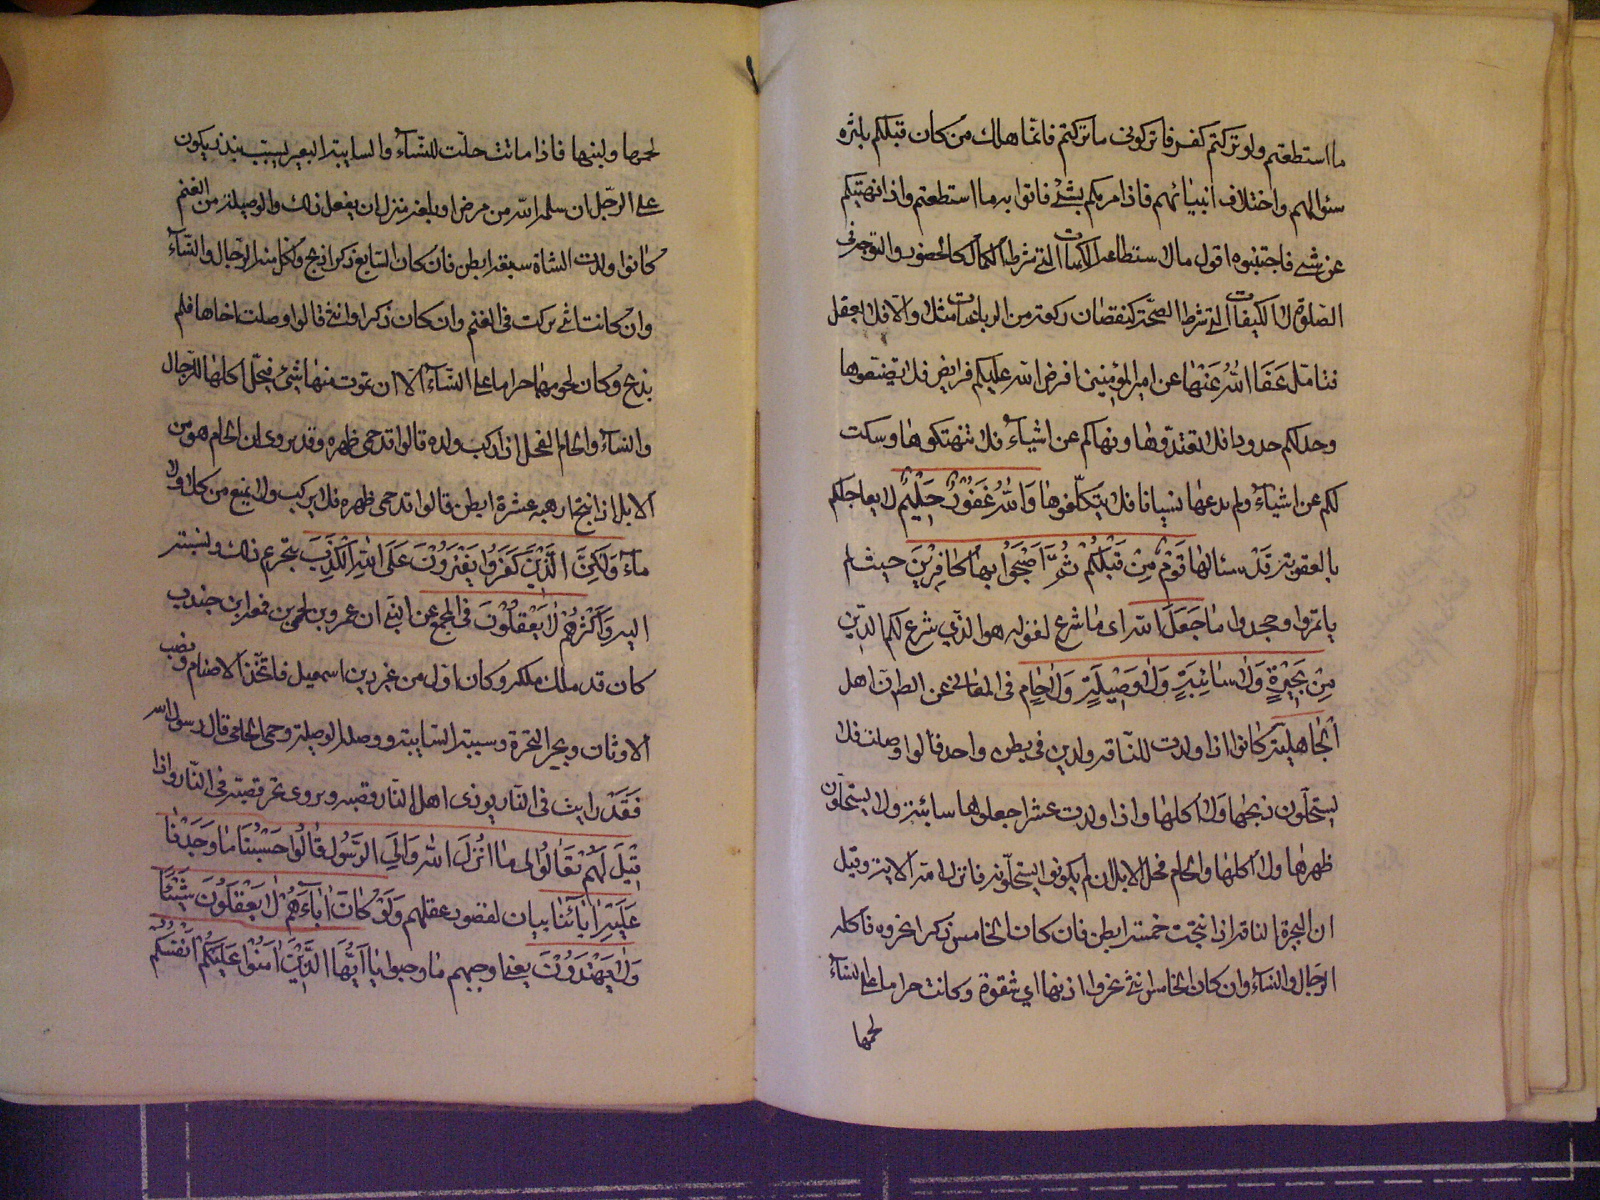 ما استطعتم ولو تركتم كفرتم فاتركونى ما تركتم فانّما هلك من كان قبلكم بكثرة
سئوالهم واختلاف انبيائهم فاذا امرتكم بشئ فاتوا به ما استطعتم واذا نهيتكم
عن شئ فاجتنبوه اقول ما لا ستطاعه الكمالات التى شرط الكمال كالحضور والتوجه فى
الصّلوة لا الكيفيات التى شرط الصحّة كنقصان ركعة من الرباعيات مثلا والّا فلا يعقل
فتامّل عَفَا اللهُ عَنْهَا عن امير المؤمنين افرض الله عليكم فرايض فلا تضيّعوها
وحد لكم حدودا فلا تعتدوها ونهاكم عن اشياء فلا تنتهكوها وسكت
لكم عن اشياء ولم يدعها نسيانا فلا تتكلّفوها وَاللهُ غَفُورٌ حَلِيمٌ لا يعاجلكم
بالعقوبة قَدْ سئالها قَوْمٌ مِنْ قَبْلِكُمْ ثُمَّ اَصْبَحُوا بها كَافِرِينَ حيث لم
ياتمروا وجحدوا مَا جَعَلَ الله اى ما شرع لقوله هو الذى شرع لكم الدين
مِنْ بَحِيْرَةٍ وَلَا سَائِبَةٍ وَلَا وَصِيْلَةٍ وَلَا حَامٍ فى المعانى عن الصادق انّ اهل
الجاهلية كانوا اذا ولدت للنّاقه ولدين فى بطن واحد قالوا وصلت فلا
يستحلّون ذبحها ولا اكلها واذا ولدت عشرا جعلوها سائبة ولا يستحلّون
ظهرها ولا اكلها والحام فحل الابل لم يكونوا يستحلّونه فانزل الله الاية وقيل
ان البحيرة الناقه اذا انتجت خمسة ابطن فان كان الخامس ذكرا نحروه فاكله
الرّجال والنساء وان كان الخامس انثى بحروا اذنها اى شقوة وكانت حراما على النساء
لحمها
لحمها ولبنها فاذا ماتت حلّت للنّساء والسايبة البعير يسيّب بنذر يكون
على الرّجل ان سلمه الله من مرض او بلغه منزله ان يفعل ذلك والوصيلة من الغنم
كانوا اذا ولدت الشاة سبعة ابطن فان كان السّابع ذكرا ذبح واكل منه الرّجال والنّساء
وان كانت انثى تركت فى الغنم وان كان ذكرا وانثى قالوا وصلت اخاها فلم
يذبح وكان لحومها حراما على النّساء الّا ان تموت منها شئ فيحل اكلها للرّجال
والنّساء والحام الفحل اذا ركب ولده قالوا قد حمى ظهره وقد يروى ان الحام هو من
الابل اذا انتج عشرة ابطن قالوا قد حمى ظهره فلا يركب ولا يمنع من كلاء ولا
ماء وَلَكِنَّ الَّذِيْنَ كَفَرُوا يَفْتَرُوْنَ عَلَى اللهِ الْكَذِبَ بتحريم ذلك ونسبته
اليه وَاَكْثَرُهُمْ لَا يَعْقِلُوْنَ فى المجمع عن النبى ان عمرو بن لحى بن قمعه ابن جندب
كان قد ملك مكه وكان اول من غير دين اسمعيل فاتّخذ الاصنام ونصب
الاوثان وبحر البحيرة وسيب السّايبة ووصل الوصيلة وحمى الحامى قال رسول الله
فَقَدْ رايت فى النّار يوذى اهل النّار ريح قصبه ويروى يجر قصبه فى النّار واذا
قِيْلَ لَهُمْ تَعَالَوْا الى مَا اَنْزَلَ اللهُ وَاِلَى الرَّسُولِ قَالُوا حَسْبُنَا مَا وَجَدْنَا
عَلَيْهِ اٰبَائَنَا بيان لقصور عقلهم وَلَوْ كَانَ اٰبَاءَهُمْ لَا يَعْقِلُوْنَ شَيْئًا
وَلَا يَهْتَدُوْنَ يا اَيُّهَا الَّذِيْنَ اٰمَنُوْا عَلَيْكُمْ اَنْفُسَكُمْ